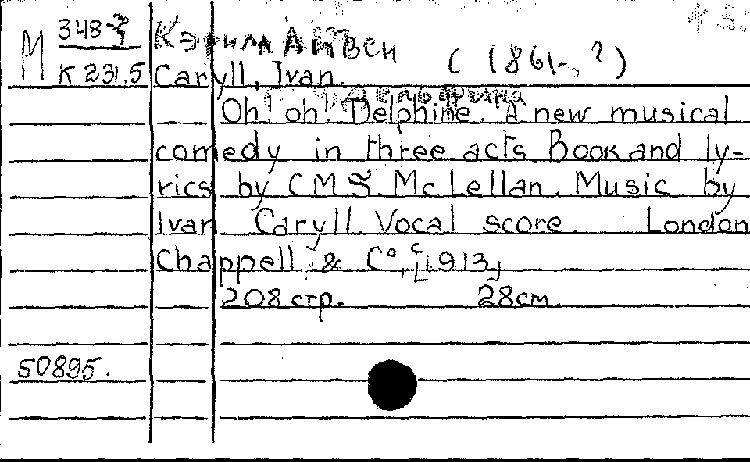 М 348-3 Кэрилл Айвен (1861-?)
К 231.5 Caryll, Ivan.
Oh! oh! Delphine. A new musical
comedy in three acts. Book and ly-
rics by C M S McLellan. Music by
Ivan Caryll. Vocal score. London
Chappell & C°, [c1913]
208 стр. 28 см.
50895.